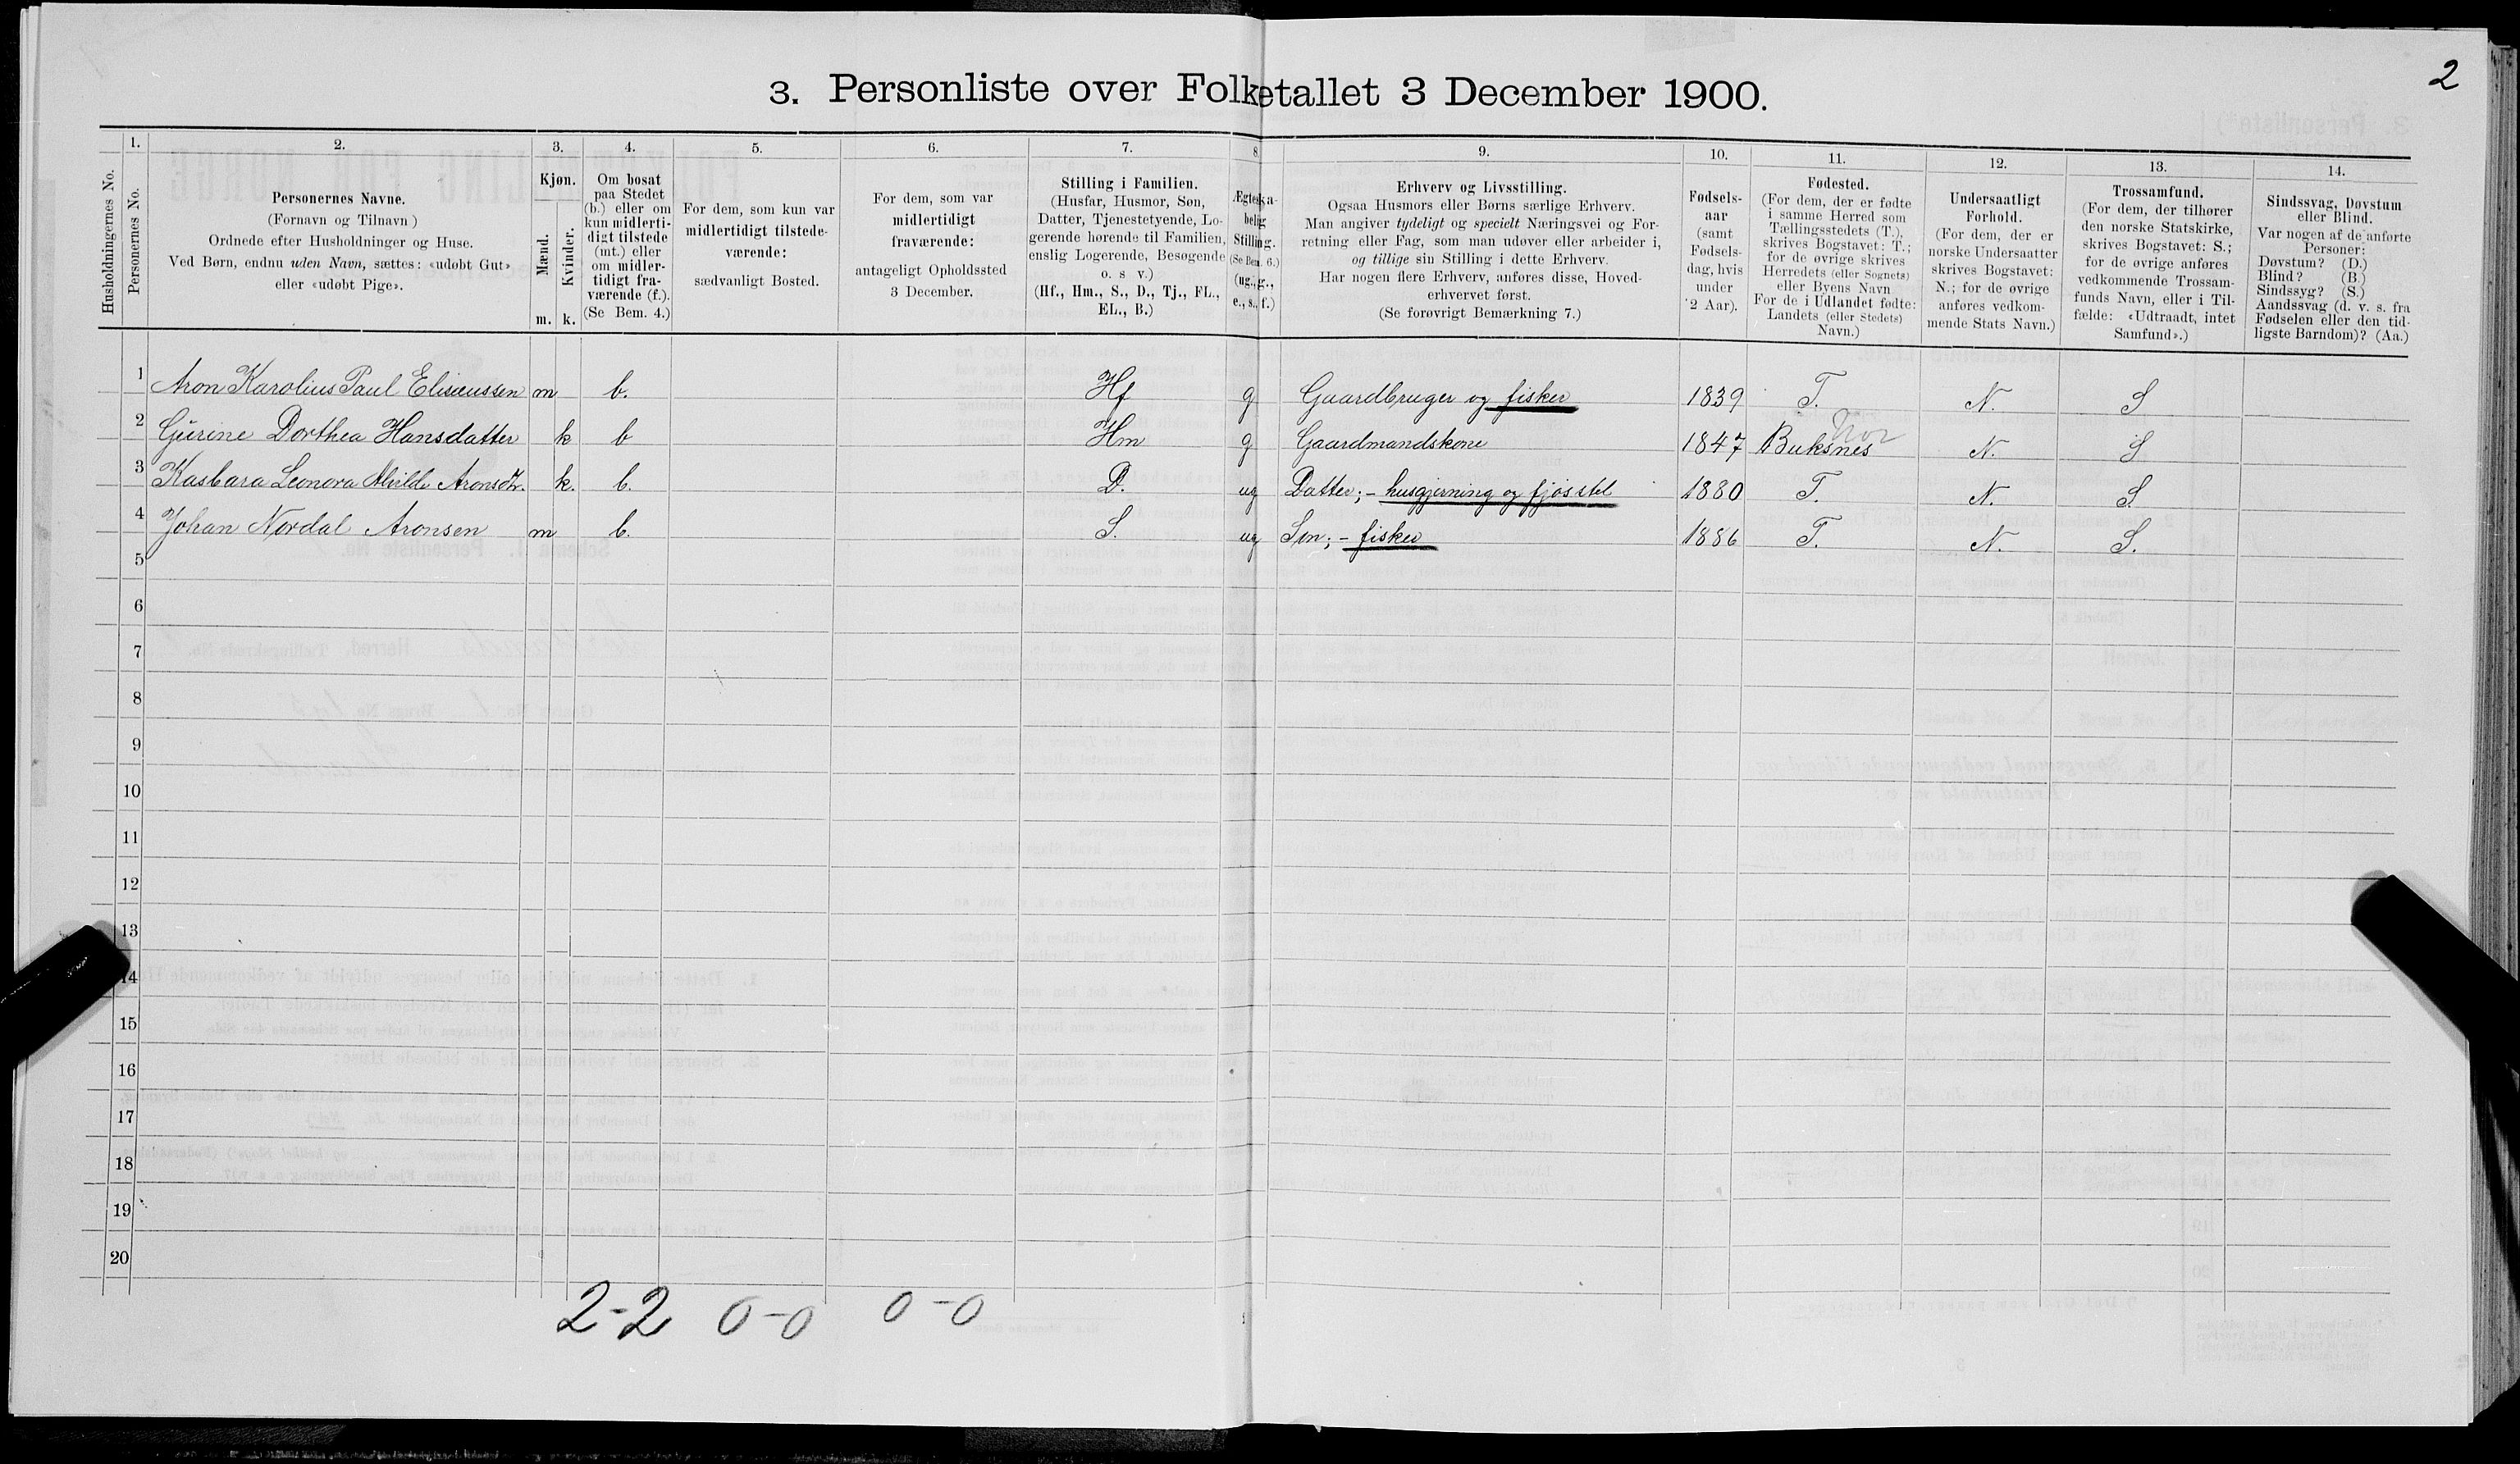 2
3. Personliste over Folketallet 3 December 1900.
Husholdningernes No.
1.
Personernes No.
2.
Personernes Navne.
(Fornavn og Tilnavn)
Ordnede efter Husholdninger og Huse.
Ved Børn, endnu uden Navn, sættes: «udøbt Gut»
eller «udøbt Pige».
3.
Kjøn.
Mænd.
Kvinder.
m. k.
4.
Om bosat
paa Stedet
(b.) eller om
kun midlerti-
digt tilstede
(mt.) eller
om midler-
tidigt fra-
værende (f.).
(Se Bem. 4.)
5.
For dem, som kun var
midlertidigt tilstede-
værende:
sædvanligt Bosted.
6.
For dem, som var
midlertidigt
fraværende:
antageligt Opholdssted
3 December.
7.
Stilling i Familien.
(Husfar, Husmor, Søn,
Datter, Tjenestetyende, Lo-
gerende hørende til Familien,
enslig Logerende, Besøgende
o. s v.)
(Hf., Hm., S., D., Tj., FL.,
EL., B.)
8.
Ægteska-
belig
Stilling.
(Se Bem. 6.)
(ug., g.,
e., s., f.)
9.
Erhverv og Livsstilling.
Ogsaa Husmors eller Børns særlige Erhverv.
Man angiver tydeligt og specielt Næringsvei og For-
retning eller Fag, som man udøver eller arbeider i,
og tillige sin Stilling i dette Erhverv.
Har nogen flere Erhverv, anføres disse, Hoved-
erhvervet først.
(Se forøvrigt Bemærkning 7.)
10.
Fødsels-
aar
(samt
Fødsels-
dag, hvis
under
2 Aar).
11.
Fødested.
(For dem, der er fødte
i samme Herred som
Tællingsstedets (T.),
skrives Bogstavet: T.;
for de øvrige skrives
Herredets (eller Sognets)
eller Byens Navn
For de i Udlandet fødte:
Landets (eller Stedets)
Navn.)
12.
Undersaatligt
Forhold.
(For dem, der er
norske Undersaatter
skrives Bogstavet:
N.; for de øvrige
anføres vedkom-
mende Stats Navn.)
13.
Trossamfund.
(For dem, der tilhører
den norske Statskirke,
skrives Bogstavet: S.;
for de øvrige anføres
vedkommende Trossam-
funds Navn, eller i Til-
fælde: «Udtraadt, intet
Samfund».)
14.
Sindssvag, Døvstum
eller Blind.
Var nogen af de anførte
Personer:
Døvstum? (D.)
Blind? (B.)
Sindssyg? (S.)
Aandssvag (d. v. s. fra
Fødselen eller den tid-
ligste Barndom)? (Aa.)
1 Aron Karolius Paul Elisæussen m b. Hf g Gaardbruger og fisker 1839 T. N. S
2 Gurine Dorthea Hansdatter k b Hm g Gaardmandskone 1847 Buksnes N. S
3 Kasbara Leonora Alvilde Aronsdtr. k. b. D. ug Datter; - husgjerning og fjøsstel 1880 T. N. S.
4 Johan Nordal Aronsen m b. S. ug Søn; - fisker 1886 T. N. S.
5
6
7
8
9
10
11
12
13
14
15
16
17
18
19
20
2-2 0-0 0-0